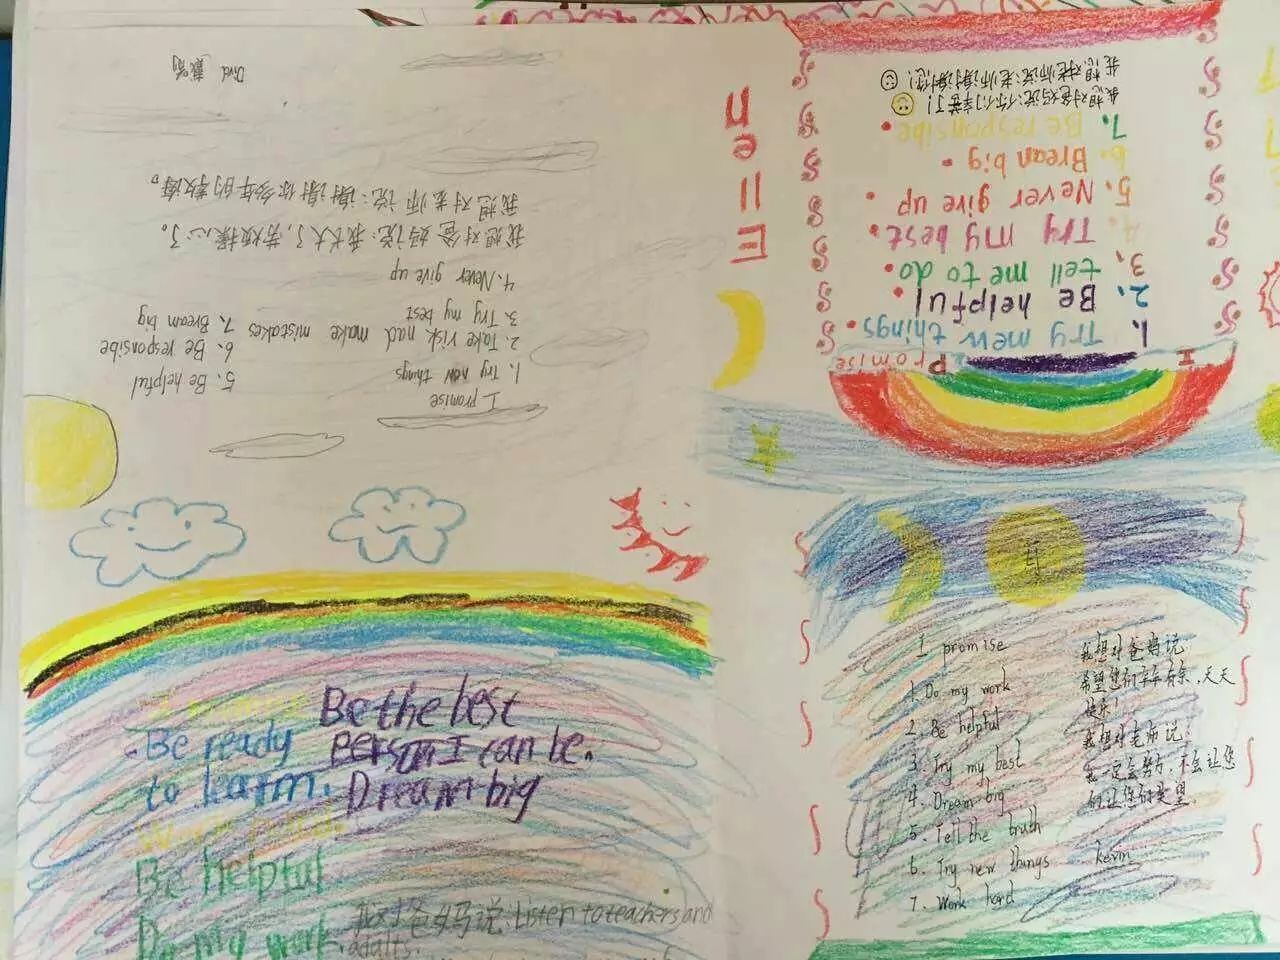 Dvd
I promise
1. Try new things
2. Take risk nad make mistakes
3. Try my best
4. Never give up
5. Be helpful
6. Be responsibe
7. Bream big
我想对爸妈说：我长大了，劳烦操心了。
我想对老师说：谢谢你多年的教海。
Ellen
I Promise
1. Try mew things
2. Be helpful
3. tell me to do
4. Try my best.
5. Never give up
6. Bream big
7. Be responsibe
我想对爸妈说：你们辛苦了！
我想对老师说：老师谢谢您！
Be ready
to learm.
Be helpful
Do my work.
Be the best
person I can be.
Dream big
我对爸妈说: Listen to teachers and
adults.
I promise
1. Do my work
2. Be helpful
3. Try my best
4. Dream big
5. Tell the truth
6. Try new things
7. Work hard
我想对爸妈说
希望您们年年有余，天天
快乐！
我想对老师说：
我一定会努力，不会让您
们让您们失望.
kevin